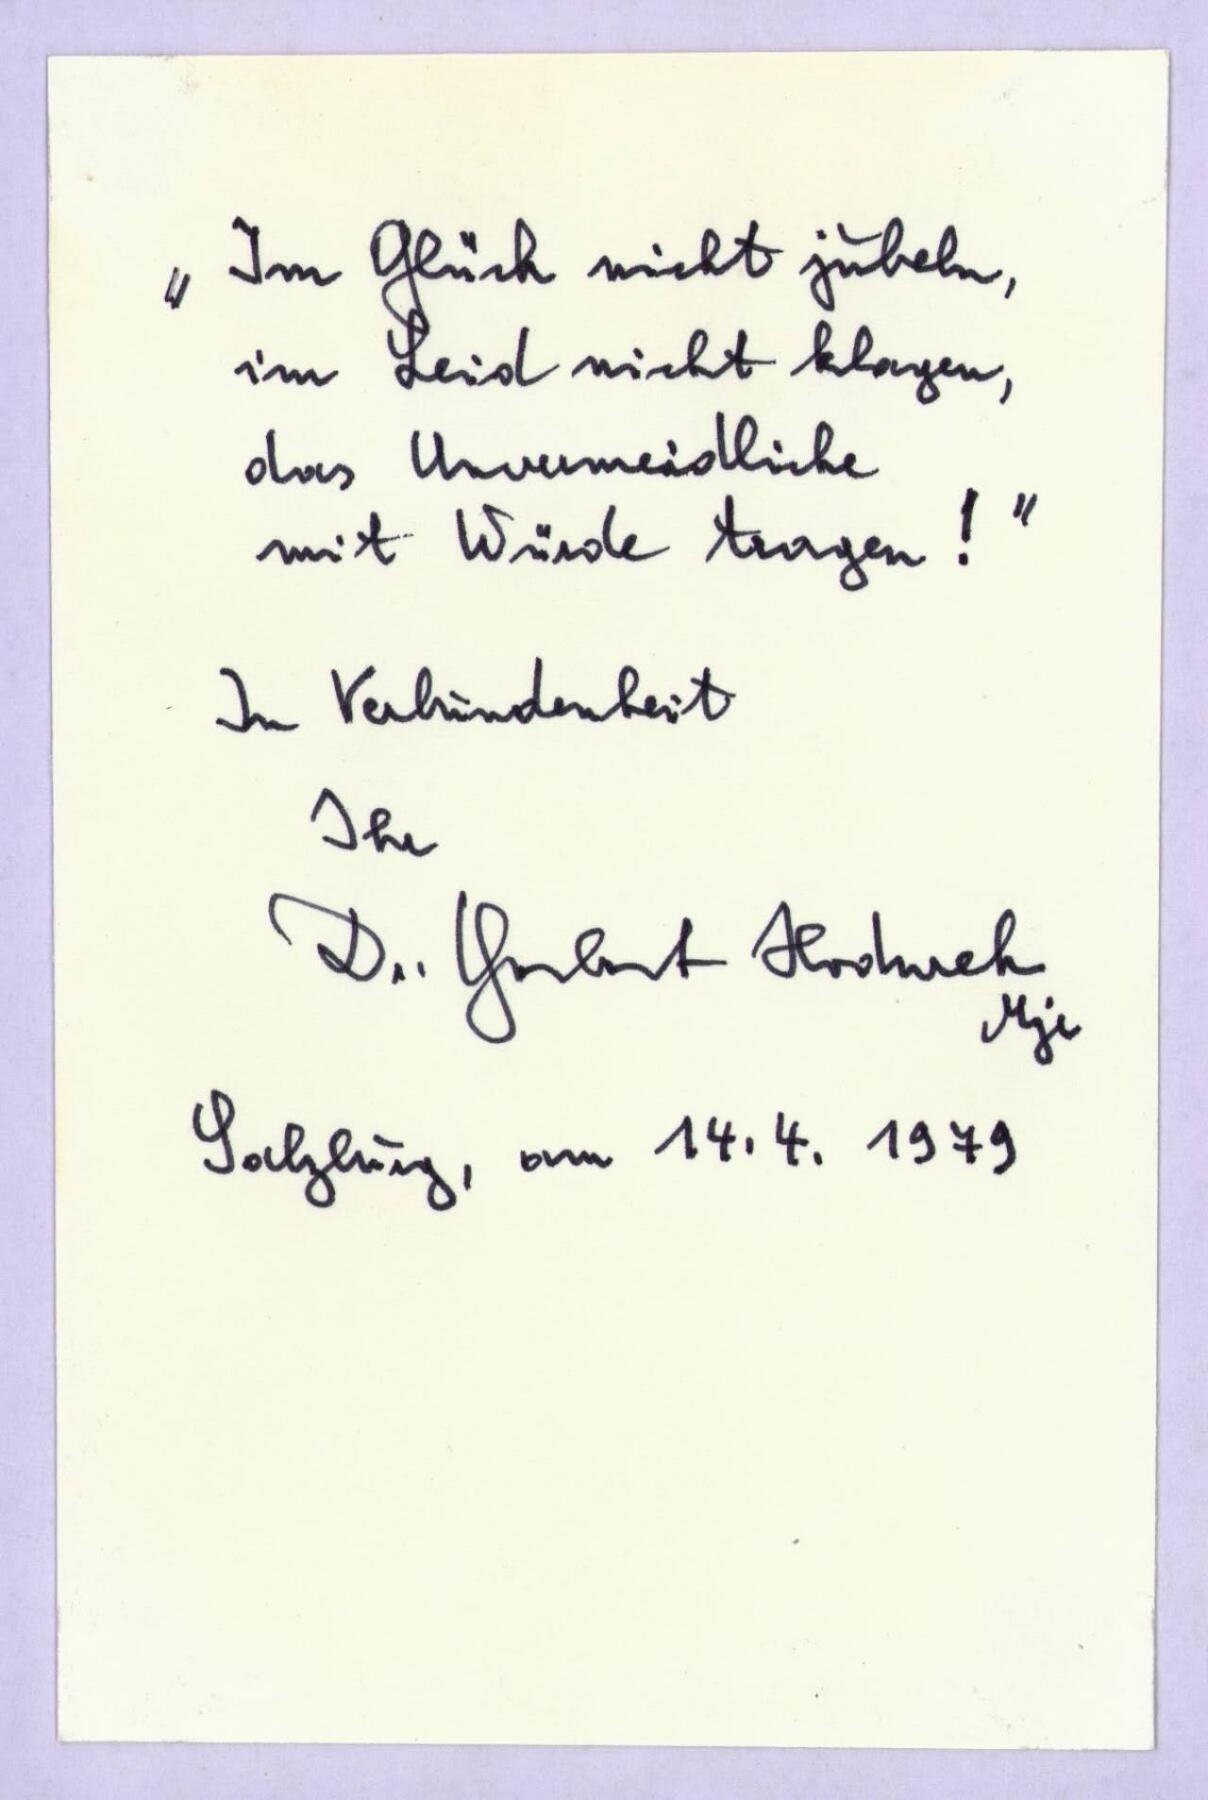 „Im Glück nicht jubeln,
im Leid nicht klagen,
das Unvermeidliche
mit Würde tragen!"
In Verbundenheit
Ihr
Dr. Herbert
Salzburg, am 14.4. 1979